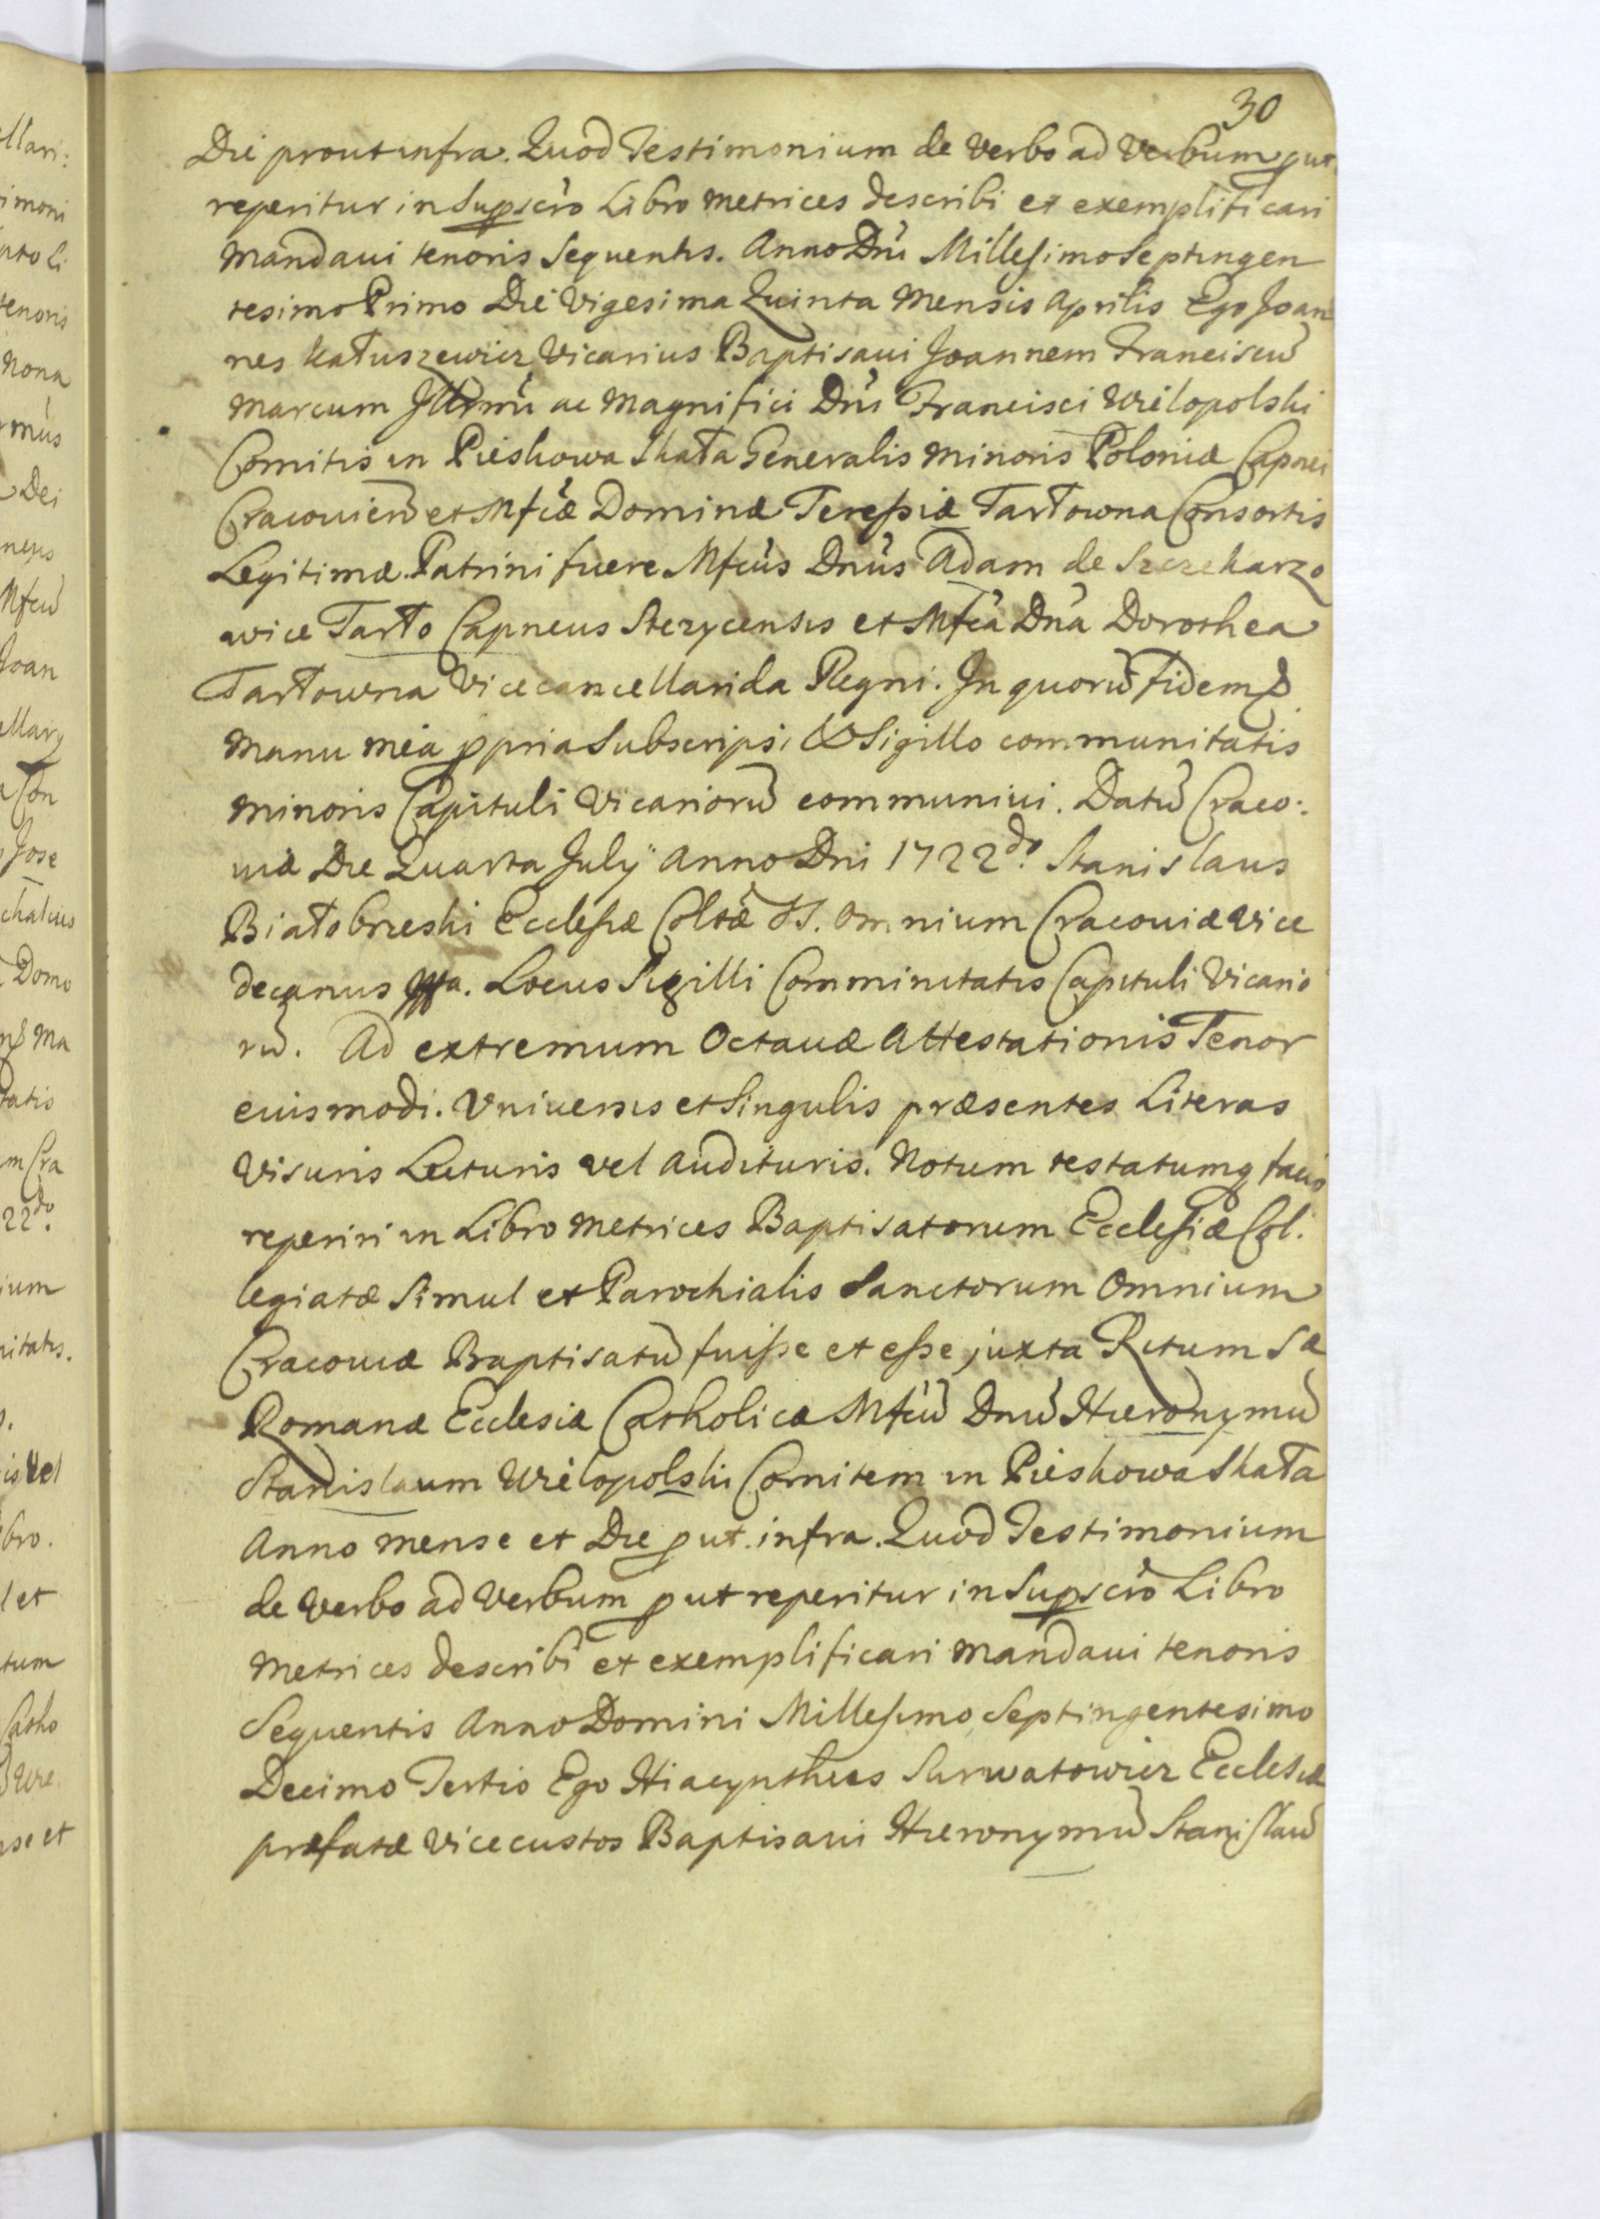 30
Die prout infra. Quod Testimonium de Verbo ad Verbum put
reperitur in Supscrō Libro Metrices describi et exemplificari
Mandaui tenoris Sequentis. Anno Dnī Millesimo Septingen
tesimo Primo Die Vigesima Quinta Mensis Aprilis Ego Joan
nes Kałuszewicz Vicarius Baptisaui Joannem Franciscū
Marcum Illrmū ac Magnifici Dnī Francisci Wielopolski
Comitis in Pieskowa Skała Generalis Minoris Poloniæ Capnei
Cracouieñ et Mfcæ Dominæ Teressiæ Tarłowna Consortis
Legitimæ. Patrini fuere Mfcus Dnūs Adam de Szczekarzo
wice Tarło Capneus Stezycensis et Mfca Dnā Dorothea
Tarłowna Vicecancellarida Regni. In quorū fidem
Manu mea ppria Subscripsi & Sigillo communitatis
minoris Capituli Vicariorū communiui. Datū Craco:
uiæ Die Quarta July Anno Dni 1722do. Stanislaus
Białobrzeski Ecclesiæ Coltæ SS. Omnium Cracouiæ Vice
decanus mpa. Locus Sigilli Comminitatis Capituli Vicario
rū. Ad extremum Octauæ Attestationis Tenor
euismodi. Vniuersis et Singulis præsentes Literas
Visuris Lecturis vel audituris. Notum testatumq facio
reperiri in Libro Metrices Baptisatorum Ecclesiæ Col.
legiatæ Simul et Parochialis Sanctorum Omnium
Cracouiæ Baptisatū fuisse et esse, juxta Ritum Sæ
Romanæ Ecclesiæ Catholicæ Mfcū Dnū Hieronymū
Stanislaum Wielopolski Comitem in Pieskowa Skała
Anno mense et Die put. infra. Quod Testimonium
de Verbo ad Verbum put reperitur in Supscrō Libro
Metrices describi et exemplificari mandaui tenoris
Sequentis Anno Domini Millesimo Septingentesimo
Decimo Tertio Ego Hiacynthus Surwatowicz Ecclesiæ
præfatæ Vicecustos Baptisaui Hieronymū Stanislaū